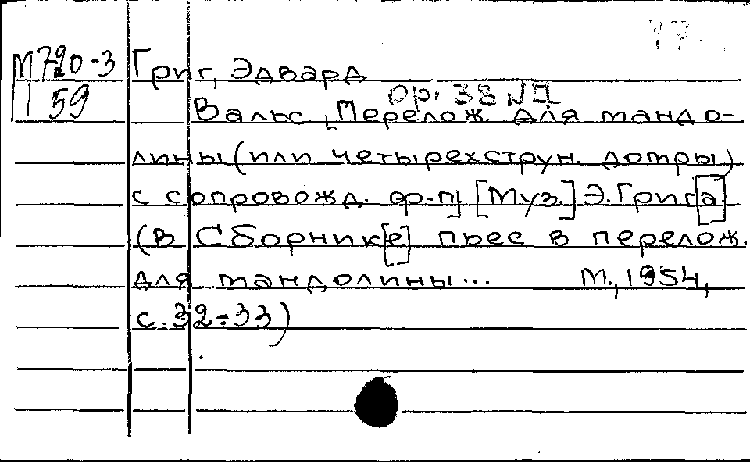 М720-3 Григ, Эдвард
159
ор. 38 №
Вальс [Перелож. для мандо-
лины (или четырехструн. домры)
с сопровожд. ф-п] [Муз.] Э. Григ[а]
(в Сборник[е] пьес в перелож.
для мандолины... М., 1954,
с. 32-33)